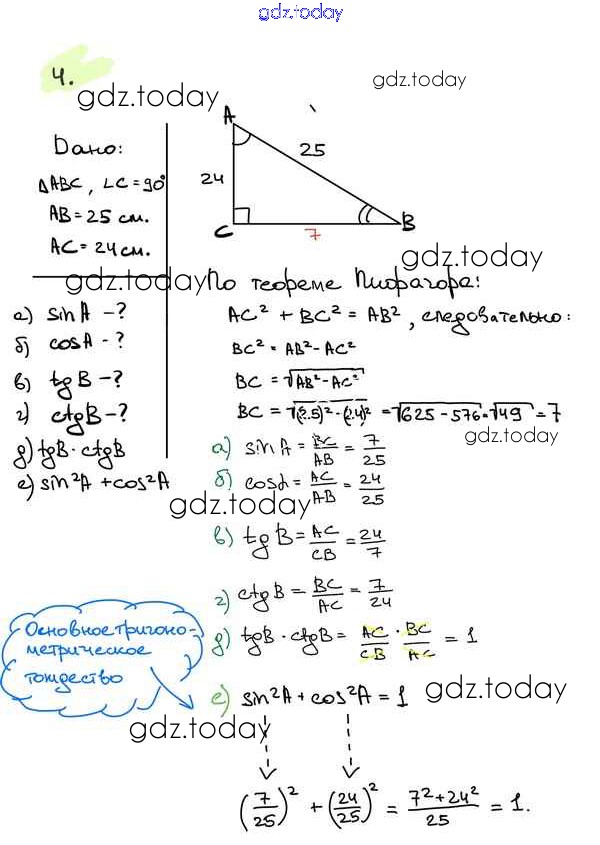 gdz.today
4.
gdz.today
gdz.today
Дано:
ΔABC, ∠C = 90°
AB = 25 см.
AC = 24 см.
A
25
24
C
7
B
gdz.today
gdz.today
а) sin A - ?
б) cos A - ?
в) tg B - ?
г) ctg B - ?
д) tgB · ctgB
е) sin²A + cos²A
По теореме Пифагора:
AC² + BC² = AB², следовательно:
BC² = AB² - AC²
BC = √AB² - AC²
BC = √(25)² - (24)² = √625 - 576 = √49 = 7
gdz.today
а) sin A = BC/AB = 7/25
б) cos A = AC/AB = 24/25
gdz.today
в) tg B = AC/CB = 24/7
г) ctg B = BC/AC = 7/24
д) tgB · ctgB = AC/CB · BC/AC = 1
Основное тригоно-
метрическое
тождество
е) sin²A + cos²A = 1
gdz.today
gdz.today
(7/25)² + (24/25)² = 7² + 24²/25 = 1.